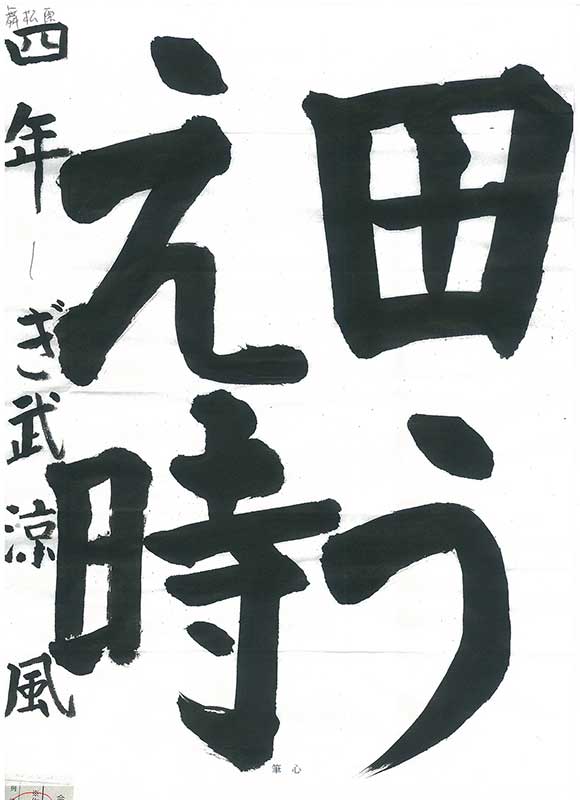 田う
え時
四年
ぎ武涼風
舞松原
筆心